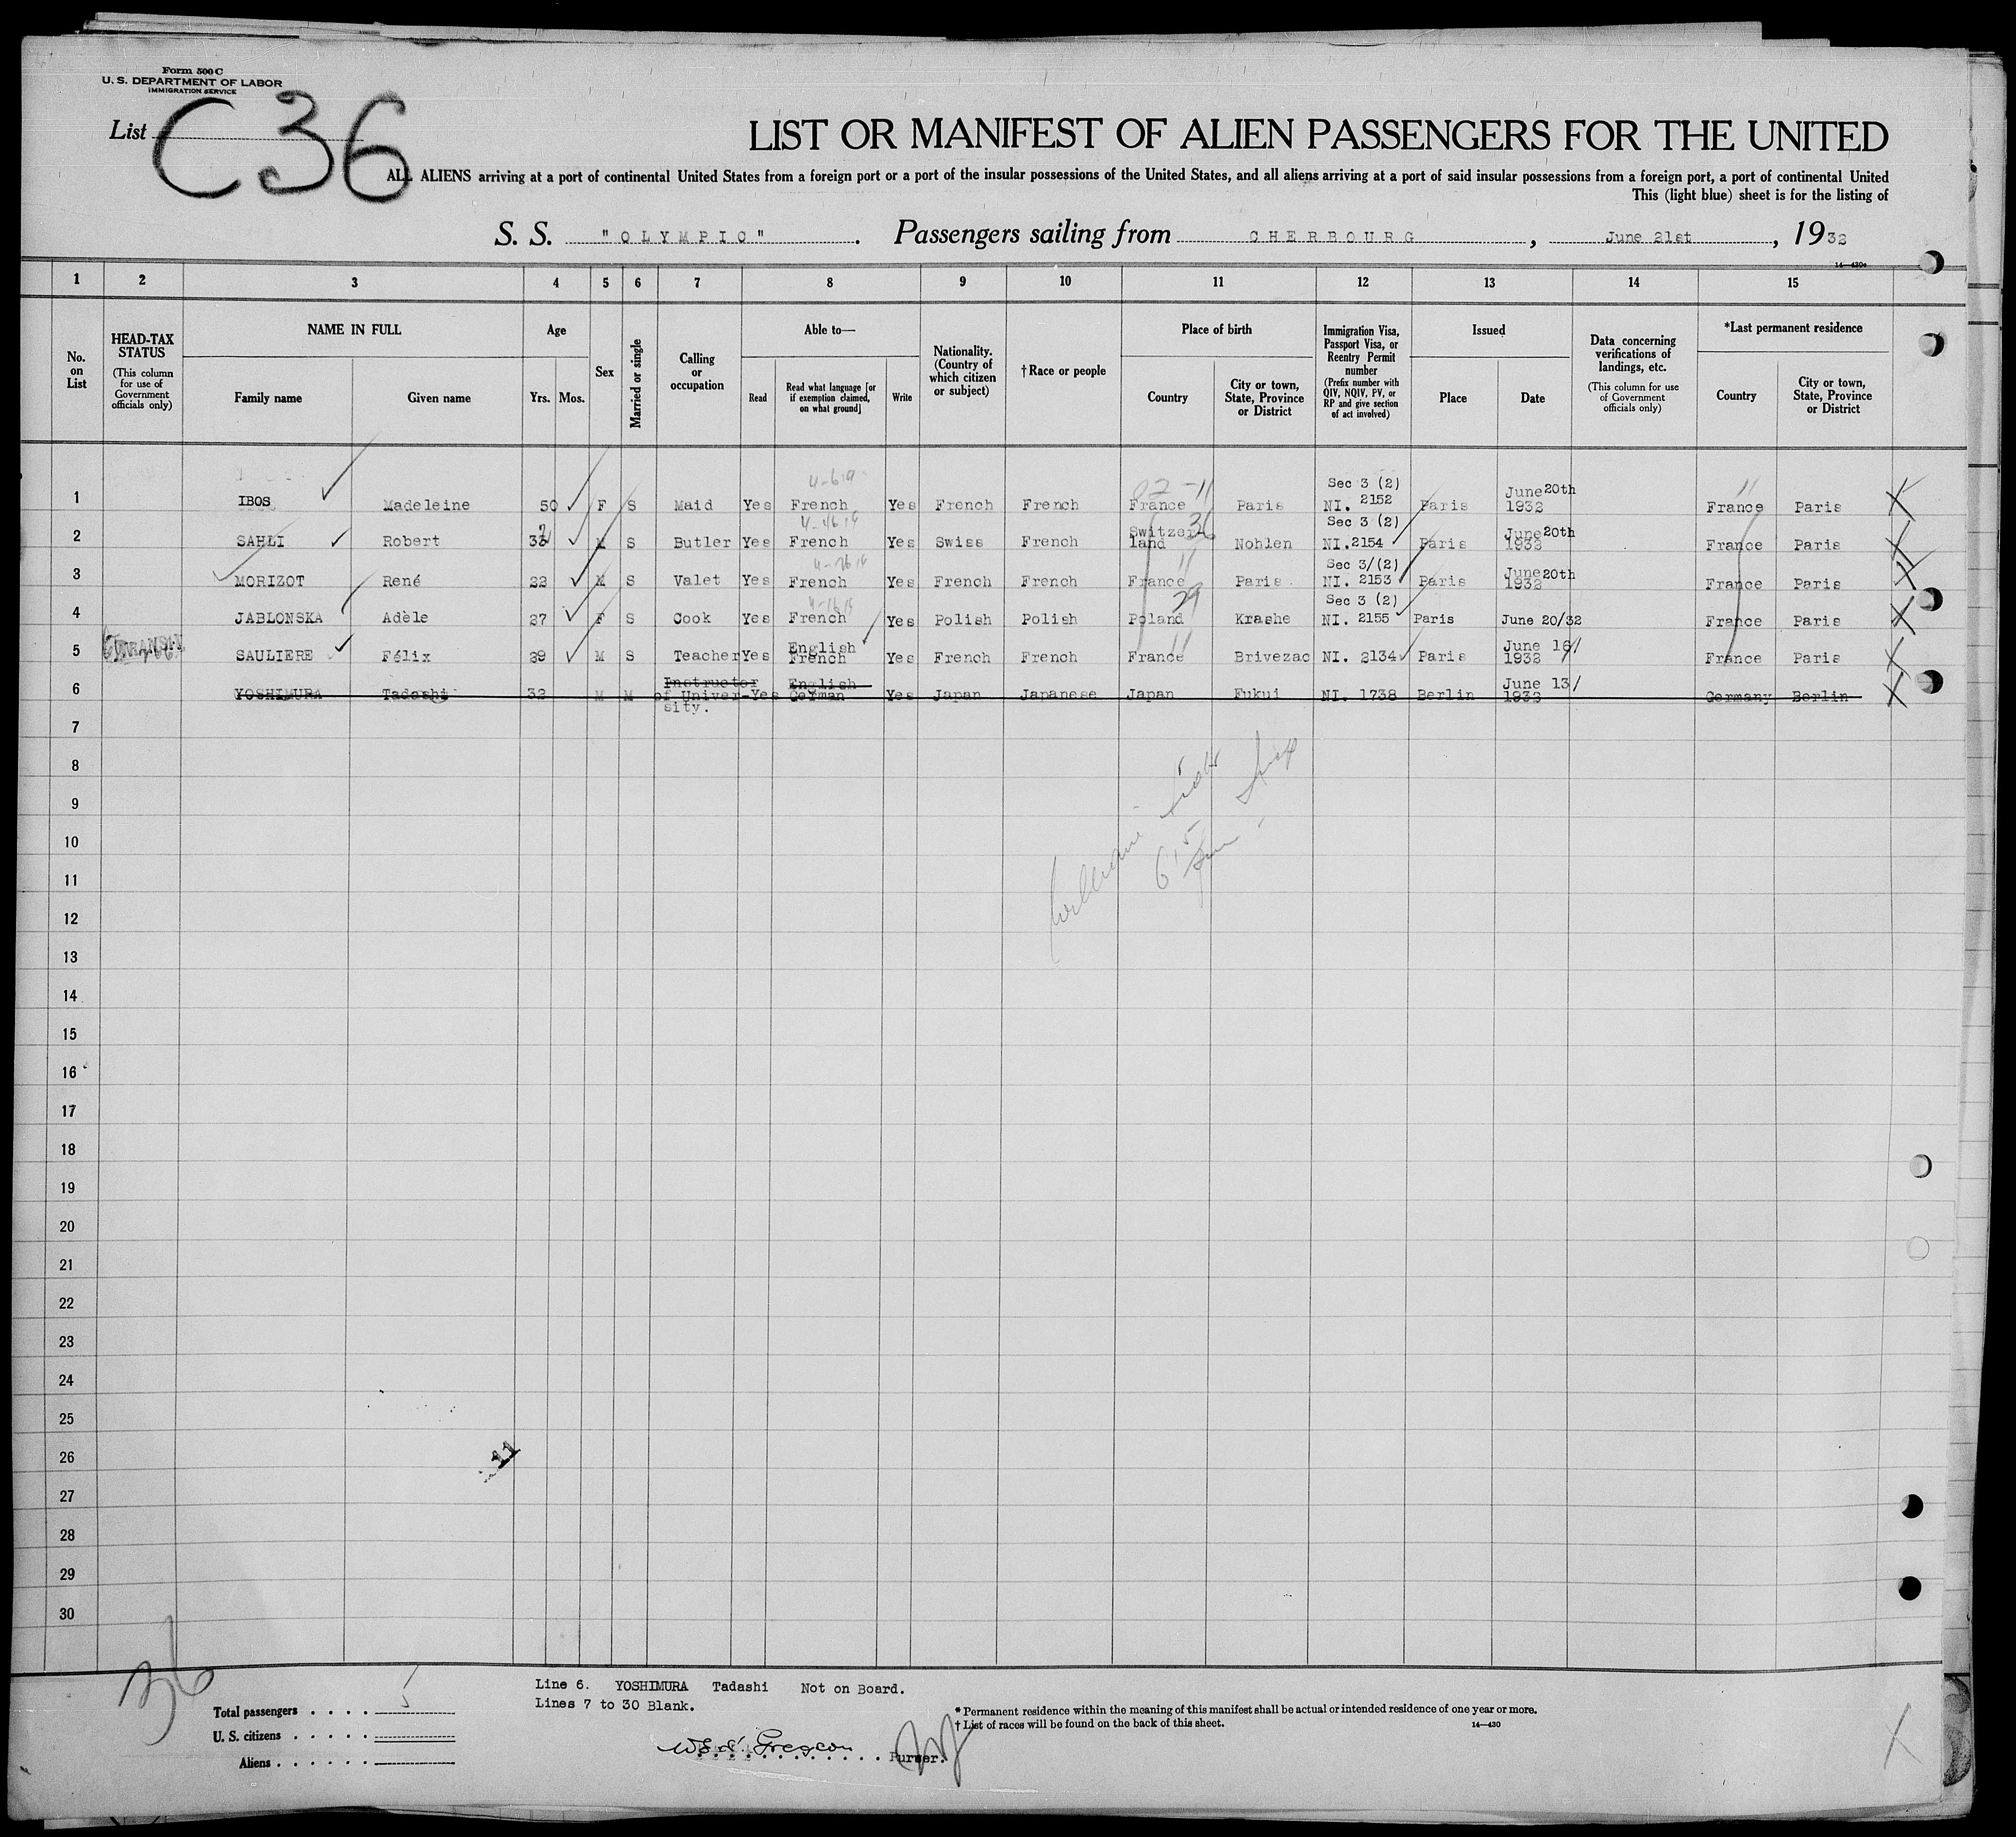 Form 500 C
U. S. DEPARTMENT OF LABOR
IMMIGRATION SERVICE
List C36
LIST OR MANIFEST OF ALIEN PASSENGERS FOR THE UNITED
ALL ALIENS arriving at a port of continental United States from a foreign port or a port of the insular possessions of the United States, and all aliens arriving at a port of said insular possessions from a foreign port, a port of continental United
This (light blue) sheet is for the listing of
S. S. "OLYMPIC". Passengers sailing from CHERBOURG, June 21st, 1932
14—430a
1 2 3 4 5 6 7 8 9 10 11 12 13 14 15
No. on List
HEAD-TAX STATUS
(This column for use of Government officials only)
NAME IN FULL
Family name Given name
Age
Yrs. Mos.
Sex
Married or single
Calling or occupation
Able to—
Read
Read what language [or if exemption claimed, on what ground]
Write
Nationality. (Country of which citizen or subject)
†Race or people
Place of birth
Country
City or town, State, Province or District
Immigration Visa, Passport Visa, or Reentry Permit number
(Prefix number with QIV, NQIV, PV, or RP and give section of act involved)
Issued
Place Date
Data concerning verifications of landings, etc.
(This column for use of Government officials only)
*Last permanent residence
Country
City or town, State, Province or District
1 IBOS Madeleine 50 F S Maid Yes French Yes French French France Paris Sec 3 (2) NI. 2152 Paris June 20th 1932 France Paris
2 SAHLI Robert M S Butler Yes French Yes Swiss French Switzerland Nohlen Sec 3 (2) NI. 2154 Paris June 20th 1932 France Paris
3 MORIZOT René 22 M S Valet Yes French Yes French French France Paris. Sec 3/(2) NI. 2153 Paris June 20th 1932 France Paris
4 JABLONSKA Adèle 27 F S Cook Yes French Yes Polish Polish Poland Krashe Sec 3 (2) NI. 2155 Paris June 20/32 France Paris
5 TRANSIT SAULIERE Félix 29 M S Teacher Yes English French Yes French French France Brivezac NI. 2134 Paris June 16/ 1932 France Paris
6 YOSHIMURA Tadashi 32 M M Instructor of University. Yes English German Yes Japan Japanese Japan Fukui NI. 1738 Berlin June 13/ 1932 Germany Berlin
7
8
9
10
11
12
13
14
15
16
17
18
19
20
21
22
23
24
25
26
27
28
29
30
11
36
Line 6. YOSHIMURA Tadashi Not on Board.
Lines 7 to 30 Blank.
Total passengers . . . . 5
U. S. citizens . . . . .
Aliens . . . . . .
* Permanent residence within the meaning of this manifest shall be actual or intended residence of one year or more.
† List of races will be found on the back of this sheet.
14—430
Purser.